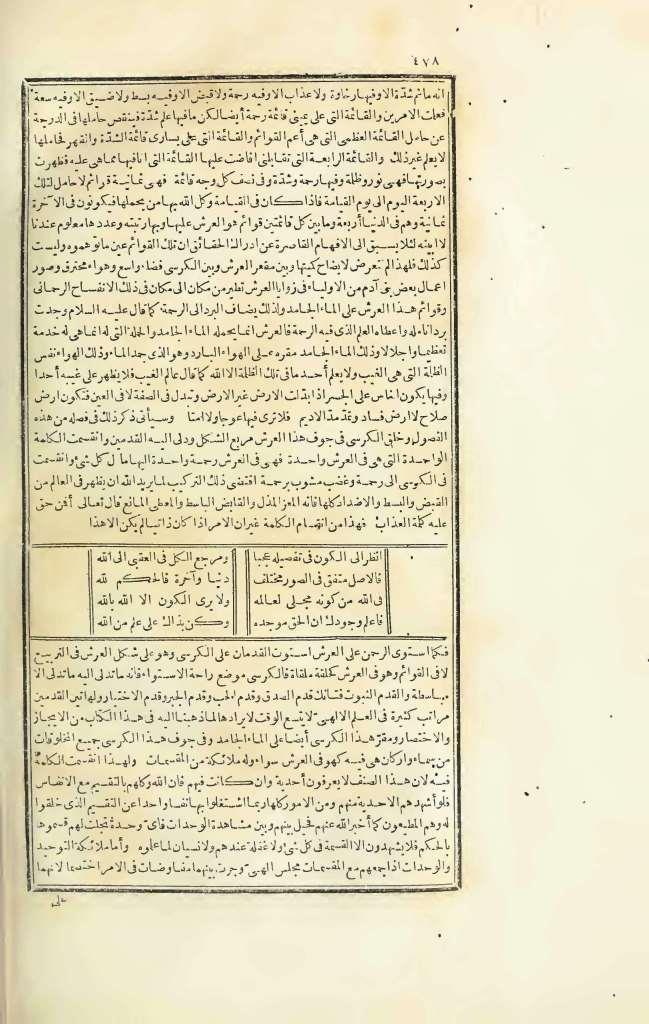 ٤٧٨
انه ماثم شدّة الا وفيها رخاوة ولا عذاب الا وفيه رحمة ولا قبض الا وفيه بسط ولا ضيق الا وفيه سعة
فعلت الامرين والقائمة التى على يمينى قائمة رحمة أيضا لكن ما فيها علم شدّة فينقص حاملها فى الدرجة
عن حامل القائمة العظمى التى هى أعم القوائم والقائمة التى على يسارى قائمة الشدّة والقهر فحاملها
لا يعلم غير ذلك والقائمة الرابعة التى تقابلنى افاضت عليها القائمة التى انا فيها مما هى عليه فظهرت
بصورتها فهى نور وظلمة وفيها رحمة وشدّة وفى نصف كل وجه قائمة فهى ثمانية قوائم لا حامل لتلك
الاربعة اليوم الى يوم القيامة فاذا كان فى القيامة وكل الله بها من يحملها فيكونون فى الآخرة
ثمانية وهم فى الدنيا أربعة وما بين كل قائمتين قوائم هو العرش عليها وبها زينته وعددها معلوم عندنا
لا أبينه لئلا يسبق الى الافهام القاصرة عن ادراك الحقائق ان تلك القوائم عين ما توهموه وليست
كذلك فلهذا لم نتعرض لايضاح كميتها وبين مقعر العرش وبين الكرسى فضاء واسع وهواء محترق وصور
اعمال بعض بنى آدم من الاولياء فى زوايا العرش تطير من مكان الى مكان فى ذلك الانفساح الرحمانى
وقوائم هذا العرش على الماء الجامد ولذلك يضاف البرد الى الرحمة كما قال عليه السلام وجدت
برد أنامله فاعطاه العلم الذى فيه الرحمة فالعرش انما يحمله الماء الجامد والحملة التى له انما هى له خدمة
تعظيما واجلالا وذلك الماء الجامد مقره على الهواء البارد وهو الذى جمد الماء وذلك الهواء نفس
الظلمة التى هى الغيب ولا يعلم أحد ما فى تلك الظلمة الا الله كما قال عالم الغيب فلا يظهر على غيبه أحدا
وفيها يكون الناس على الجسر اذا بدّلت الارض غير الارض وتبدل فى الصفة لا فى العين فتكون ارض
صلاح لا ارض فساد وتمدّ مدّ الاديم فلا ترى فيها عوجا ولا امتا وسيأتى ذكر ذلك فى فصله من هذه
الفصول وخلق الكرسى فى جوف هذا العرش مربع الشكل ودلى اليه القدمين وانقسمت الكلمة
الواحدة التى هى فى العرش واحدة فهى فى العرش رحمة واحدة اليها مآل كل شئ وانقسمت
فى الكرسى الى رحمة وغضب مشوب برحمة اقتضى ذلك التركيب لما يريد الله ان يظهر فى العالم من
القبض والبسط والاضداد كلها فانه المعز المذل والقابض الباسط والمعطى المانع قال تعالى أفمن حق
عليه كلمة العذاب فهذا من انقسام الكلمة غير ان الامر اذا كان ذاتيا لم يكن الا هذا
انظر الى الكون فى تفصيله عجبا ومرجع الكل فى العقبى الى الله
فالاصل متفق فى الصور مختلف دنيا وآخرة فالحكم لله
فى الله من كونه مجلى لعالمه ولا يرى الكون الا الله بالله
فاعلم وجودك ان الحق موجده وكن بذاك على علم من الله
فكما استوى الرحمن على العرش استوت القدمان على الكرسى وهو على شكل العرش فى التربيع
لا فى القوائم وهو فى العرش كحلقة ملقاة فالكرسى موضع راحة الاستواء فانه ما تدلى اليه ما تدلى الا
مباسطة والقدم الثبوت فتانك قدم الصدق وقدم الحب وقدم الجبر وقدم الاختيار ولهاتين القدمين
مراتب كثيرة فى العلم الالهى لا يتسع الوقت لايرادها لما ذهبنا اليه فى هذا الكتاب من الايجاز
والاختصار ومقرّ هذا الكرسى أيضا على الماء الجامد وفى جوف هذا الكرسى جميع المخلوقات
من سماء واركان هى فيه كهو فى العرش سواء وله ملائكة من المقسمات ولهذا انقسمت الكلمة
فيه لان هذا الصنف لا يعرفون أحدية وان كانت فيهم فان الله وكلهم بالتقسيم مع الانفاس
فلو أشهدهم الاحدية منهم ومن الامور كلها ربما اشتغلوا بها نفسا واحدا عن التقسيم الذى خلقوا
له وهم المطيعون كما أخبر الله عنهم فحيل بينهم وبين مشاهدة الوحدات فأىّ وحدة تجلت لهم قسموها
بالحكم فلا يشهدون الا القسمة فى كل شئ ولا غفلة عندهم ولا نسيان لما علموه وأما ملائكة التوحيد
والوحدات اذا جمعهم مع المقسمات مجلس الهى وجرت بينهما مفاوضات فى الامر اختصما لانهما
على